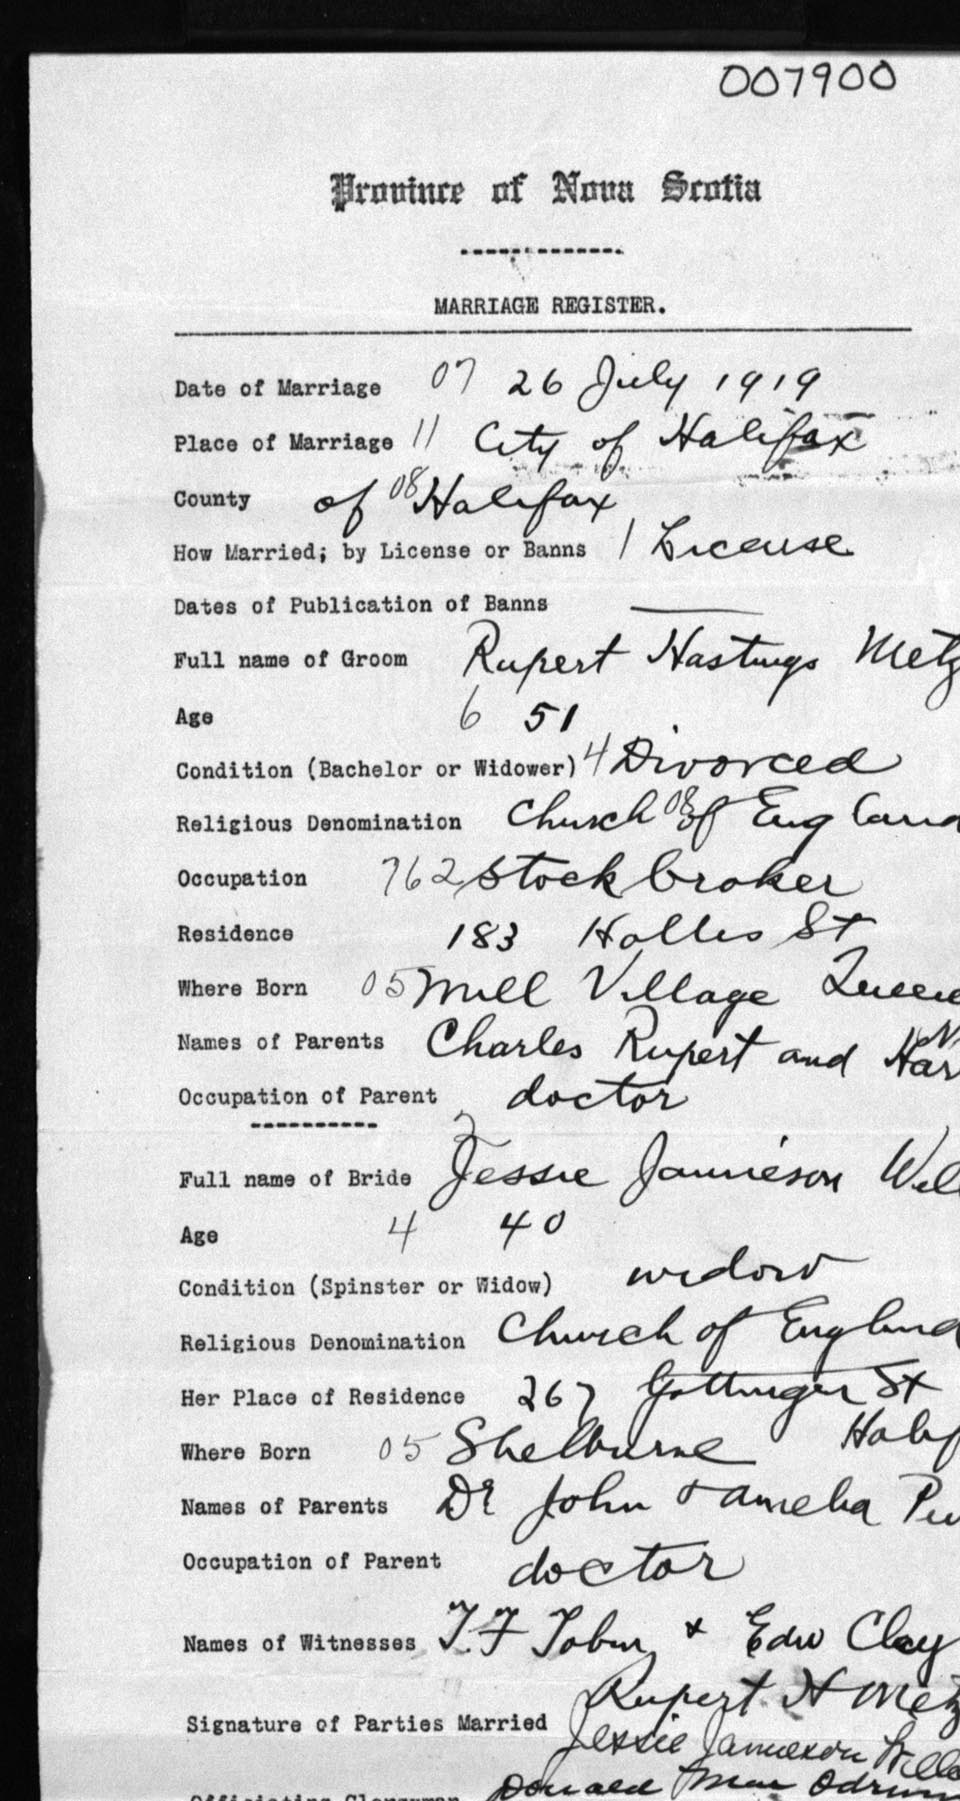 007900
Province of Nova Scotia
MARRIAGE REGISTER.
Date of Marriage 07 26 July 1919
Place of Marriage 11 City of Halifax
County of 08 Halifax
How Married; by License or Banns 1 License
Dates of Publication of Banns —
Full name of Groom Rupert Hastings Metz
Age 6 51
Condition (Bachelor or Widower) 4 Divorced
Religious Denomination Church 08 of England
Occupation 762 Stock broker
Residence 183 Hollis St
Where Born 05 Mill Village
Names of Parents Charles Rupert and Har
Occupation of Parent doctor
Full name of Bride Jessie Jamieson
Age 4 40
Condition (Spinster or Widow) widow
Religious Denomination Church of England
Her Place of Residence 267 Gottingen St
Where Born 05 Shelburne Halif
Names of Parents Dr John + Amelia
Occupation of Parent doctor
Names of Witnesses T.F Tobin + Edw Clay
Rupert H Metz
Signature of Parties Married
Jessie Jamieson
Donald
Officiating Clergyman